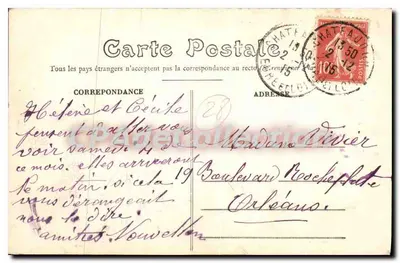 Carte Postale
Tous les pays étrangers n'acceptent pas la correspondance au recto
CORREPONDANCE
ADRESSE
Hélène et Cécile
pensent d'aller vous
voir samedi
ce mois. elles arriveront
le matin. si cela
vous dérangeait
nous le dire.
amitiés
28
Madame Vivier
19 Boulevard Rocheplatte
Orléans